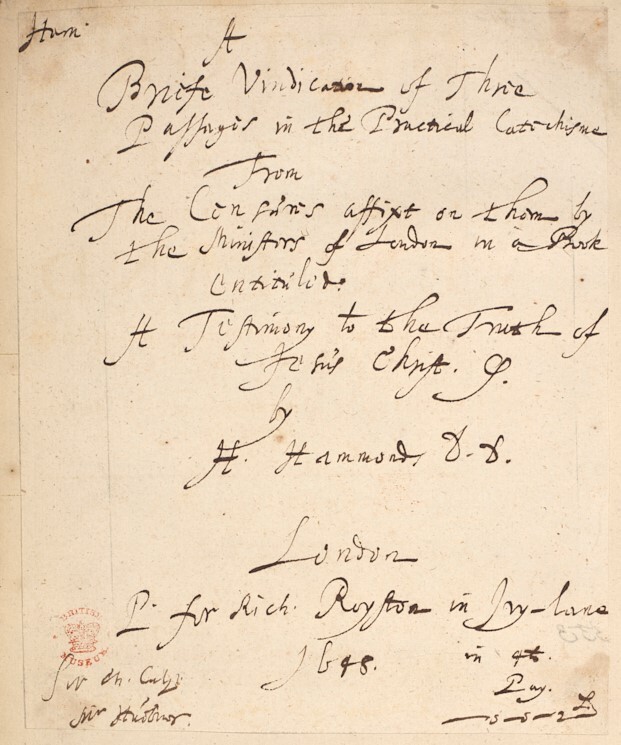 Ham
A
Briefe Vindication of Three
Passages in the Practical Catechisme
From
The Censures affixt on them by
the Ministers of London in a Book
entituled.
A Testimony to the Truth of
Jesus Christ. &.
by
H. Hammond, D. D.
London
P. for Rich. Royston in Ivy-lane
1648. in 4t.
Pag.
BRITISH
MUSEUM